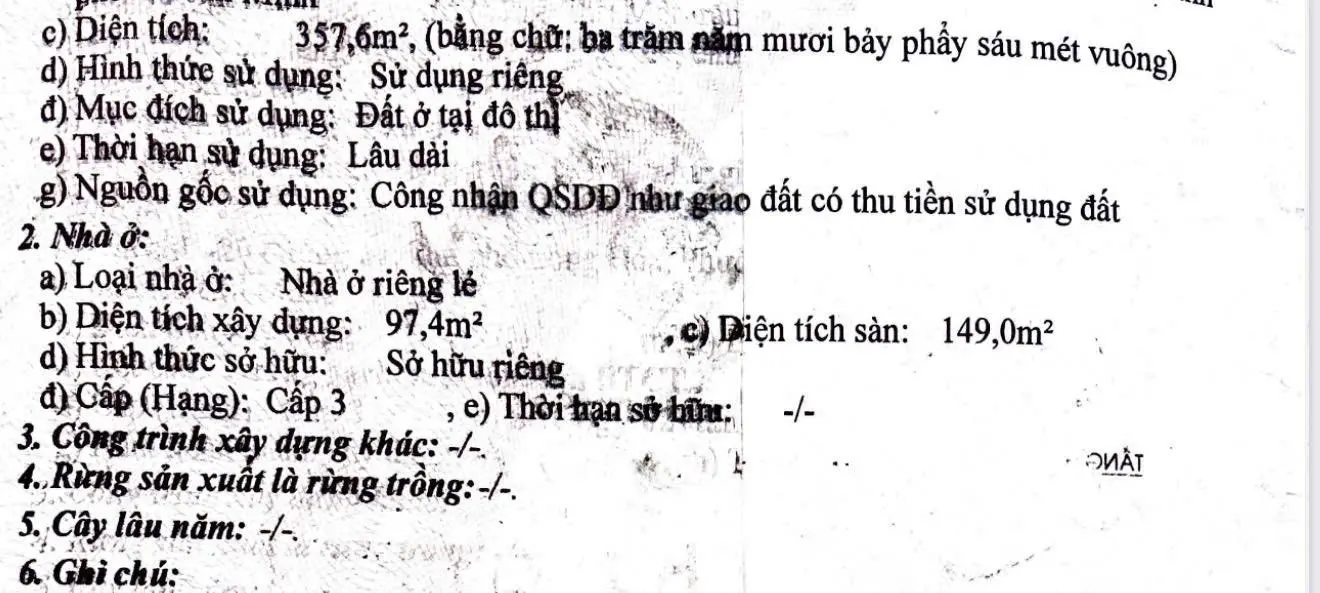 c) Diện tích: 357,6m², (bằng chữ: ba trăm năm mươi bảy phẩy sáu mét vuông)
d) Hình thức sử dụng: Sử dụng riêng
đ) Mục đích sử dụng: Đất ở tại đô thị
e) Thời hạn sử dụng: Lâu dài
g) Nguồn gốc sử dụng: Công nhận QSDĐ như giao đất có thu tiền sử dụng đất
2. Nhà ở:
a) Loại nhà ở: Nhà ở riêng lẻ
b) Diện tích xây dựng: 97,4m² , c) Diện tích sàn: 149,0m²
d) Hình thức sở hữu: Sở hữu riêng
đ) Cấp (Hạng): Cấp 3 , e) Thời hạn sở hữu: -/-
3. Công trình xây dựng khác: -/-.
4. Rừng sản xuất là rừng trồng: -/-.
5. Cây lâu năm: -/-.
6. Ghi chú: